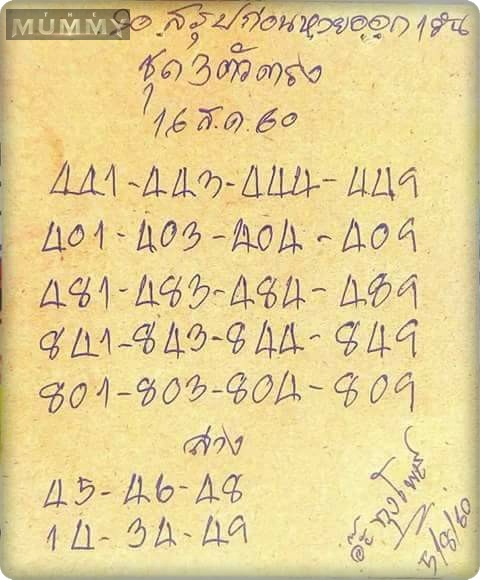 MUMMY
ขอสรุปก่อนหวยออก 1 วัน
ชุด 3 ตัวตรง
16 ส.ค. 60
441-443-444-449
401-403-404-409
481-483-484-489
841-843-844-849
801-803-804-809
ล่าง
45-46-48
14-34-49
5/8/60